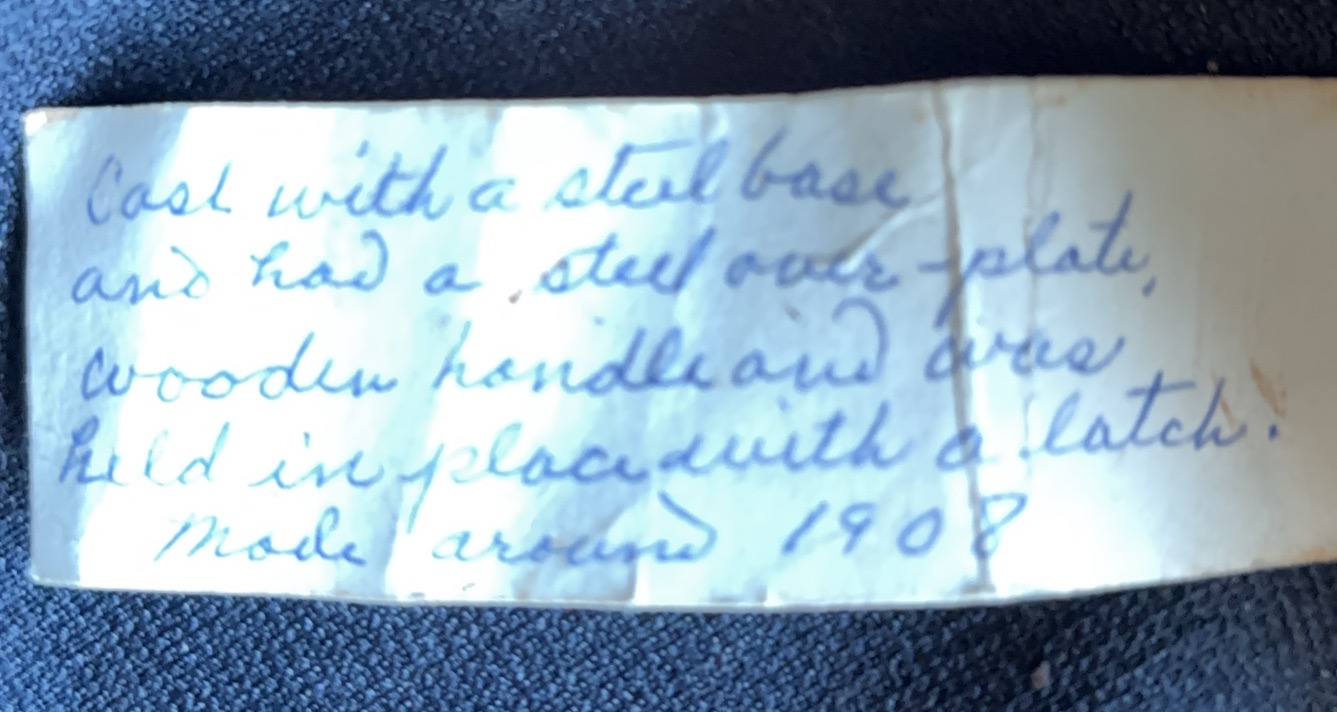 Cast with a steel base
and had a steel over-plate,
wooden handle and was
held in place with a latch.
Made around 1908